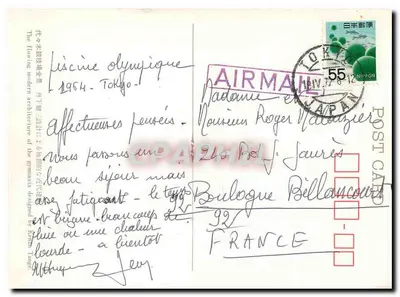 piscine olympique
1964 - Tokyo -
Affectueuses pensées.
Nous passons un
beau séjour mais
assez fatigant - le temps
est bizarre beaucoup de
pluie ou une chaleur
lourde - a bientôt
AIRMAIL
Madame et
Monsieur Roger
216 Bd. J. Jaurès
92 Boulogne Billancourt
92
FRANCE
日本郵便
55
NIPPON
TOKYO
JAPAN
POST CARD
代々木競技場全景
The flowing modern architecture of the gymnasia designed by